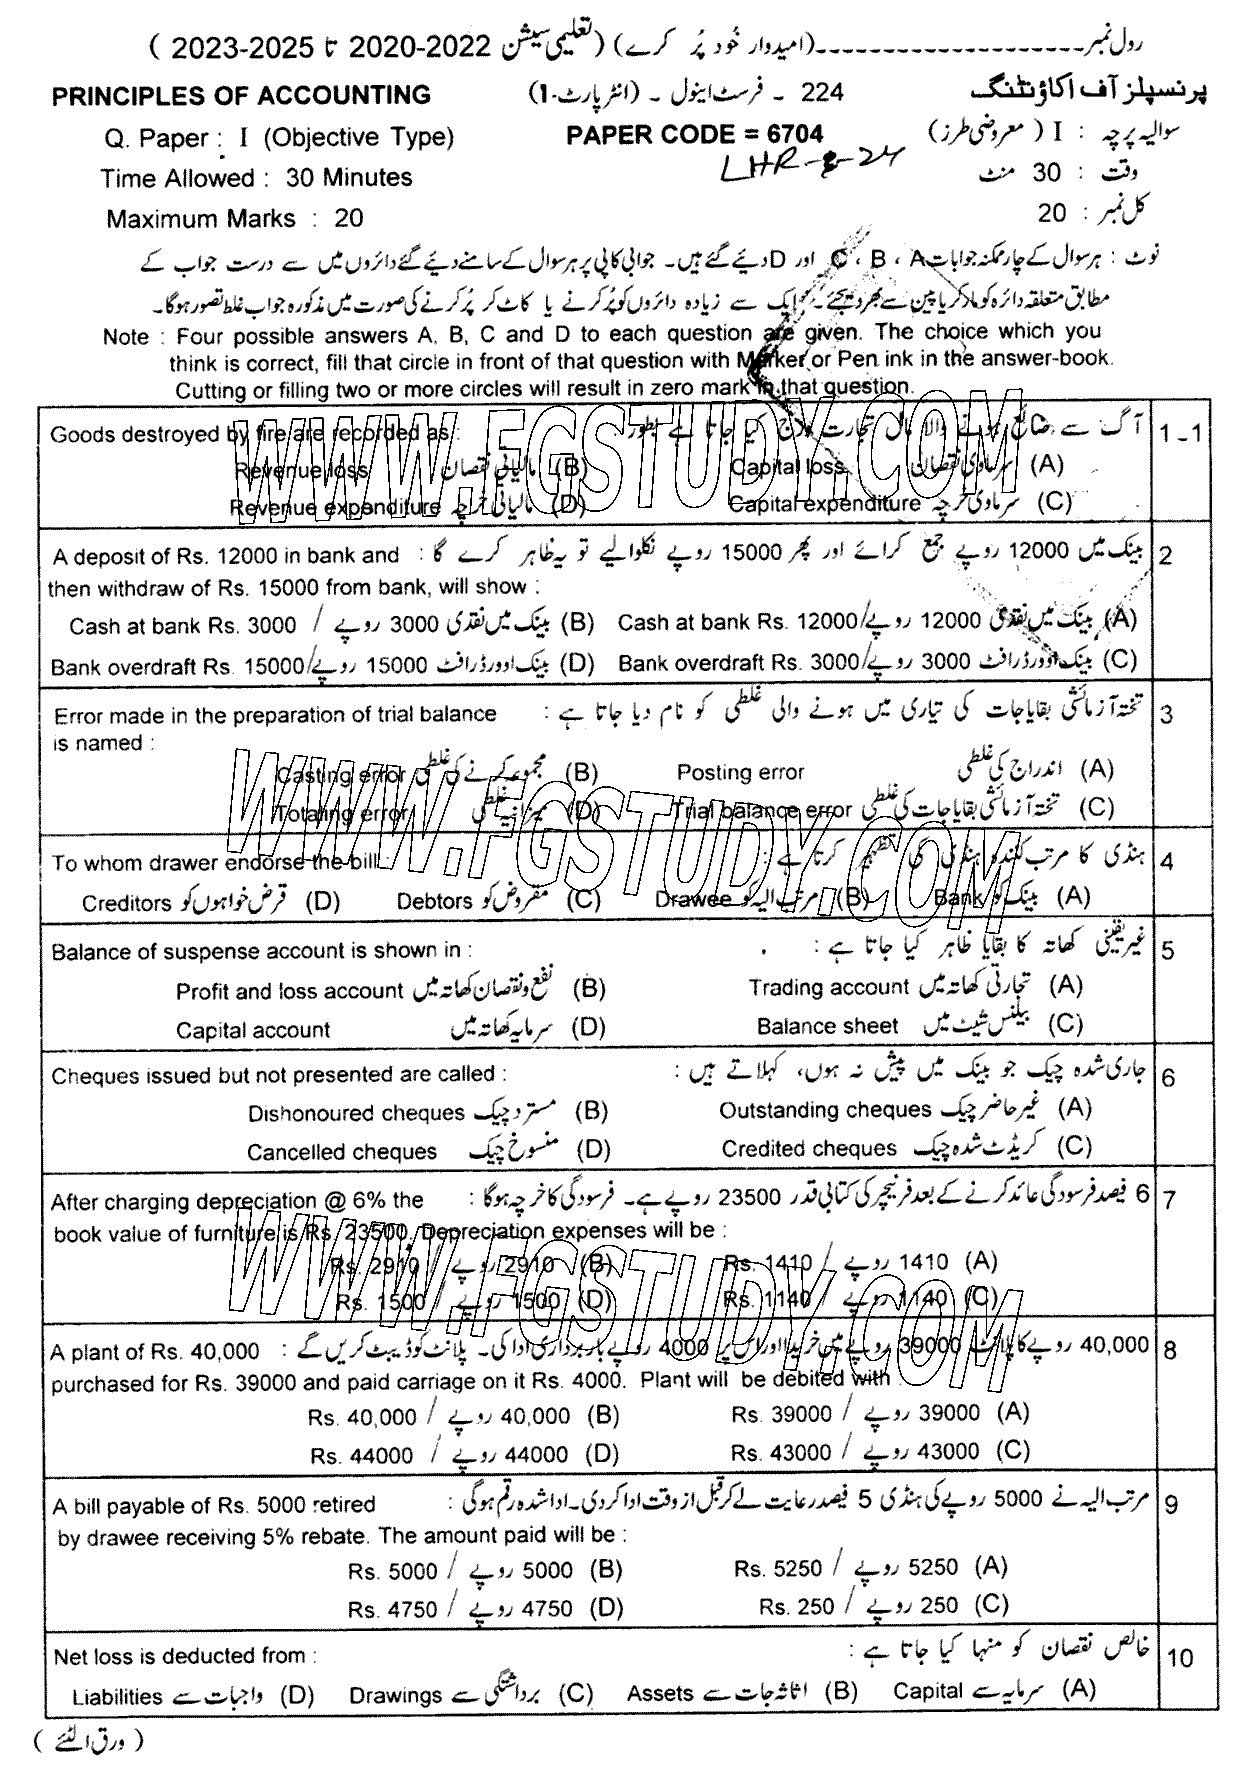 رول نمبر---------------------(امیدوار خُود پُر کرے) (تعلیمی سیشن 2022-2020 تا 2025-2023 )
PRINCIPLES OF ACCOUNTING 224 ۔ فرسٹ اینول ۔ (انٹر پارٹ-I) پرنسپلز آف اکاؤنٹنگ
Q. Paper : I (Objective Type) PAPER CODE = 6704 سوالیہ پرچہ : I ( معروضی طرز )
LHR-8-24
Time Allowed : 30 Minutes وقت : 30 منٹ
Maximum Marks : 20 کل نمبر : 20
نوٹ : ہر سوال کے چار ممکنہ جوابات A ، B ، C اور D دیئے گئے ہیں۔ جوابی کاپی پر ہر سوال کے سامنے دیئے گئے دائروں میں سے درست جواب کے
مطابق متعلقہ دائرہ کو مارکر یا پین سے بھر دیجئے۔ ایک سے زیادہ دائروں کو پُر کرنے یا کاٹ کر پُر کرنے کی صورت میں مذکورہ جواب غلط تصور ہوگا۔
Note : Four possible answers A, B, C and D to each question are given. The choice which you
think is correct, fill that circle in front of that question with Marker or Pen ink in the answer-book.
Cutting or filling two or more circles will result in zero mark in that question.
1-1 آگ سے ضائع ہونے والا مال تجارت درج کیا جاتا ہے بطور: Goods destroyed by fire are recorded as :
(A) سرماوی نقصان Capital loss (B) مالیاتی نقصان Revenue loss
(C) سرماوی خرچہ Capital expenditure (D) مالیاتی خرچہ Revenue expenditure
2 بینک میں 12000 روپے جمع کرائے اور پھر 15000 روپے نکلوا لیے تو یہ ظاہر کرے گا : A deposit of Rs. 12000 in bank and
then withdraw of Rs. 15000 from bank, will show :
(A) بینک میں نقدی 12000 روپے/Cash at bank Rs. 12000 (B) بینک میں نقدی 3000 روپے / Cash at bank Rs. 3000
(C) بینک اوورڈرافٹ 3000 روپے/Bank overdraft Rs. 3000 (D) بینک اوورڈرافٹ 15000 روپے/Bank overdraft Rs. 15000
3 تختہ آزمائشی بقایاجات کی تیاری میں ہونے والی غلطی کو نام دیا جاتا ہے : Error made in the preparation of trial balance
is named :
(A) اندراج کی غلطی Posting error (B) مجموعہ کرنے کی غلطی Casting error
(C) تختہ آزمائشی بقایاجات کی غلطی Trial balance error (D) میزانیہ غلطی Totaling error
4 ہنڈی کا مرتب کنندہ ہنڈی کی تظہیر کرتا ہے : To whom drawer endorse the bill :
(A) بینک کو Bank (B) مرتب الیہ کو Drawee (C) مقروض کو Debtors (D) قرض خواہوں کو Creditors
5 غیر یقینی کھاتہ کا بقایا ظاہر کیا جاتا ہے : Balance of suspense account is shown in :
(A) تجارتی کھاتہ میں Trading account (B) نفع و نقصان کھاتہ میں Profit and loss account
(C) بیلنس شیٹ میں Balance sheet (D) سرمایہ کھاتہ میں Capital account
6 جاری شدہ چیک جو بینک میں پیش نہ ہوں، کہلاتے ہیں : Cheques issued but not presented are called :
(A) غیر حاضر چیک Outstanding cheques (B) مسترد چیک Dishonoured cheques
(C) کریڈٹ شدہ چیک Credited cheques (D) منسوخ چیک Cancelled cheques
7 6 فیصد فرسودگی عائد کرنے کے بعد فرنیچر کی کتابی قدر 23500 روپے ہے۔ فرسودگی کا خرچہ ہوگا : After charging depreciation @ 6% the
book value of furniture is Rs. 23500. Depreciation expenses will be :
(A) 1410 روپے / Rs. 1410 (B) 2910 روپے / Rs. 2910
(C) 1140 روپے / Rs. 1140 (D) 1500 روپے / Rs. 1500
8 40,000 روپے کا پلانٹ 39000 روپے میں خریدا اور اس پر 4000 روپے باربرداری ادا کی۔ پلانٹ کو ڈیبٹ کریں گے : A plant of Rs. 40,000
purchased for Rs. 39000 and paid carriage on it Rs. 4000. Plant will be debited with :
(A) 39000 روپے / Rs. 39000 (B) 40,000 روپے / Rs. 40,000
(C) 43000 روپے / Rs. 43000 (D) 44000 روپے / Rs. 44000
9 مرتب الیہ نے 5000 روپے کی ہنڈی 5 فیصد رعایت لے کر قبل از وقت ادا کر دی۔ ادا شدہ رقم ہوگی : A bill payable of Rs. 5000 retired
by drawee receiving 5% rebate. The amount paid will be :
(A) 5250 روپے / Rs. 5250 (B) 5000 روپے / Rs. 5000
(C) 250 روپے / Rs. 250 (D) 4750 روپے / Rs. 4750
10 خالص نقصان کو منہا کیا جاتا ہے : Net loss is deducted from :
(A) سرمایہ سے Capital (B) اثاثہ جات سے Assets (C) برداشتگی سے Drawings (D) واجبات سے Liabilities
( ورق الٹئے )
WWW.FGSTUDY.COM
WWW.FGSTUDY.COM
WWW.FGSTUDY.COM